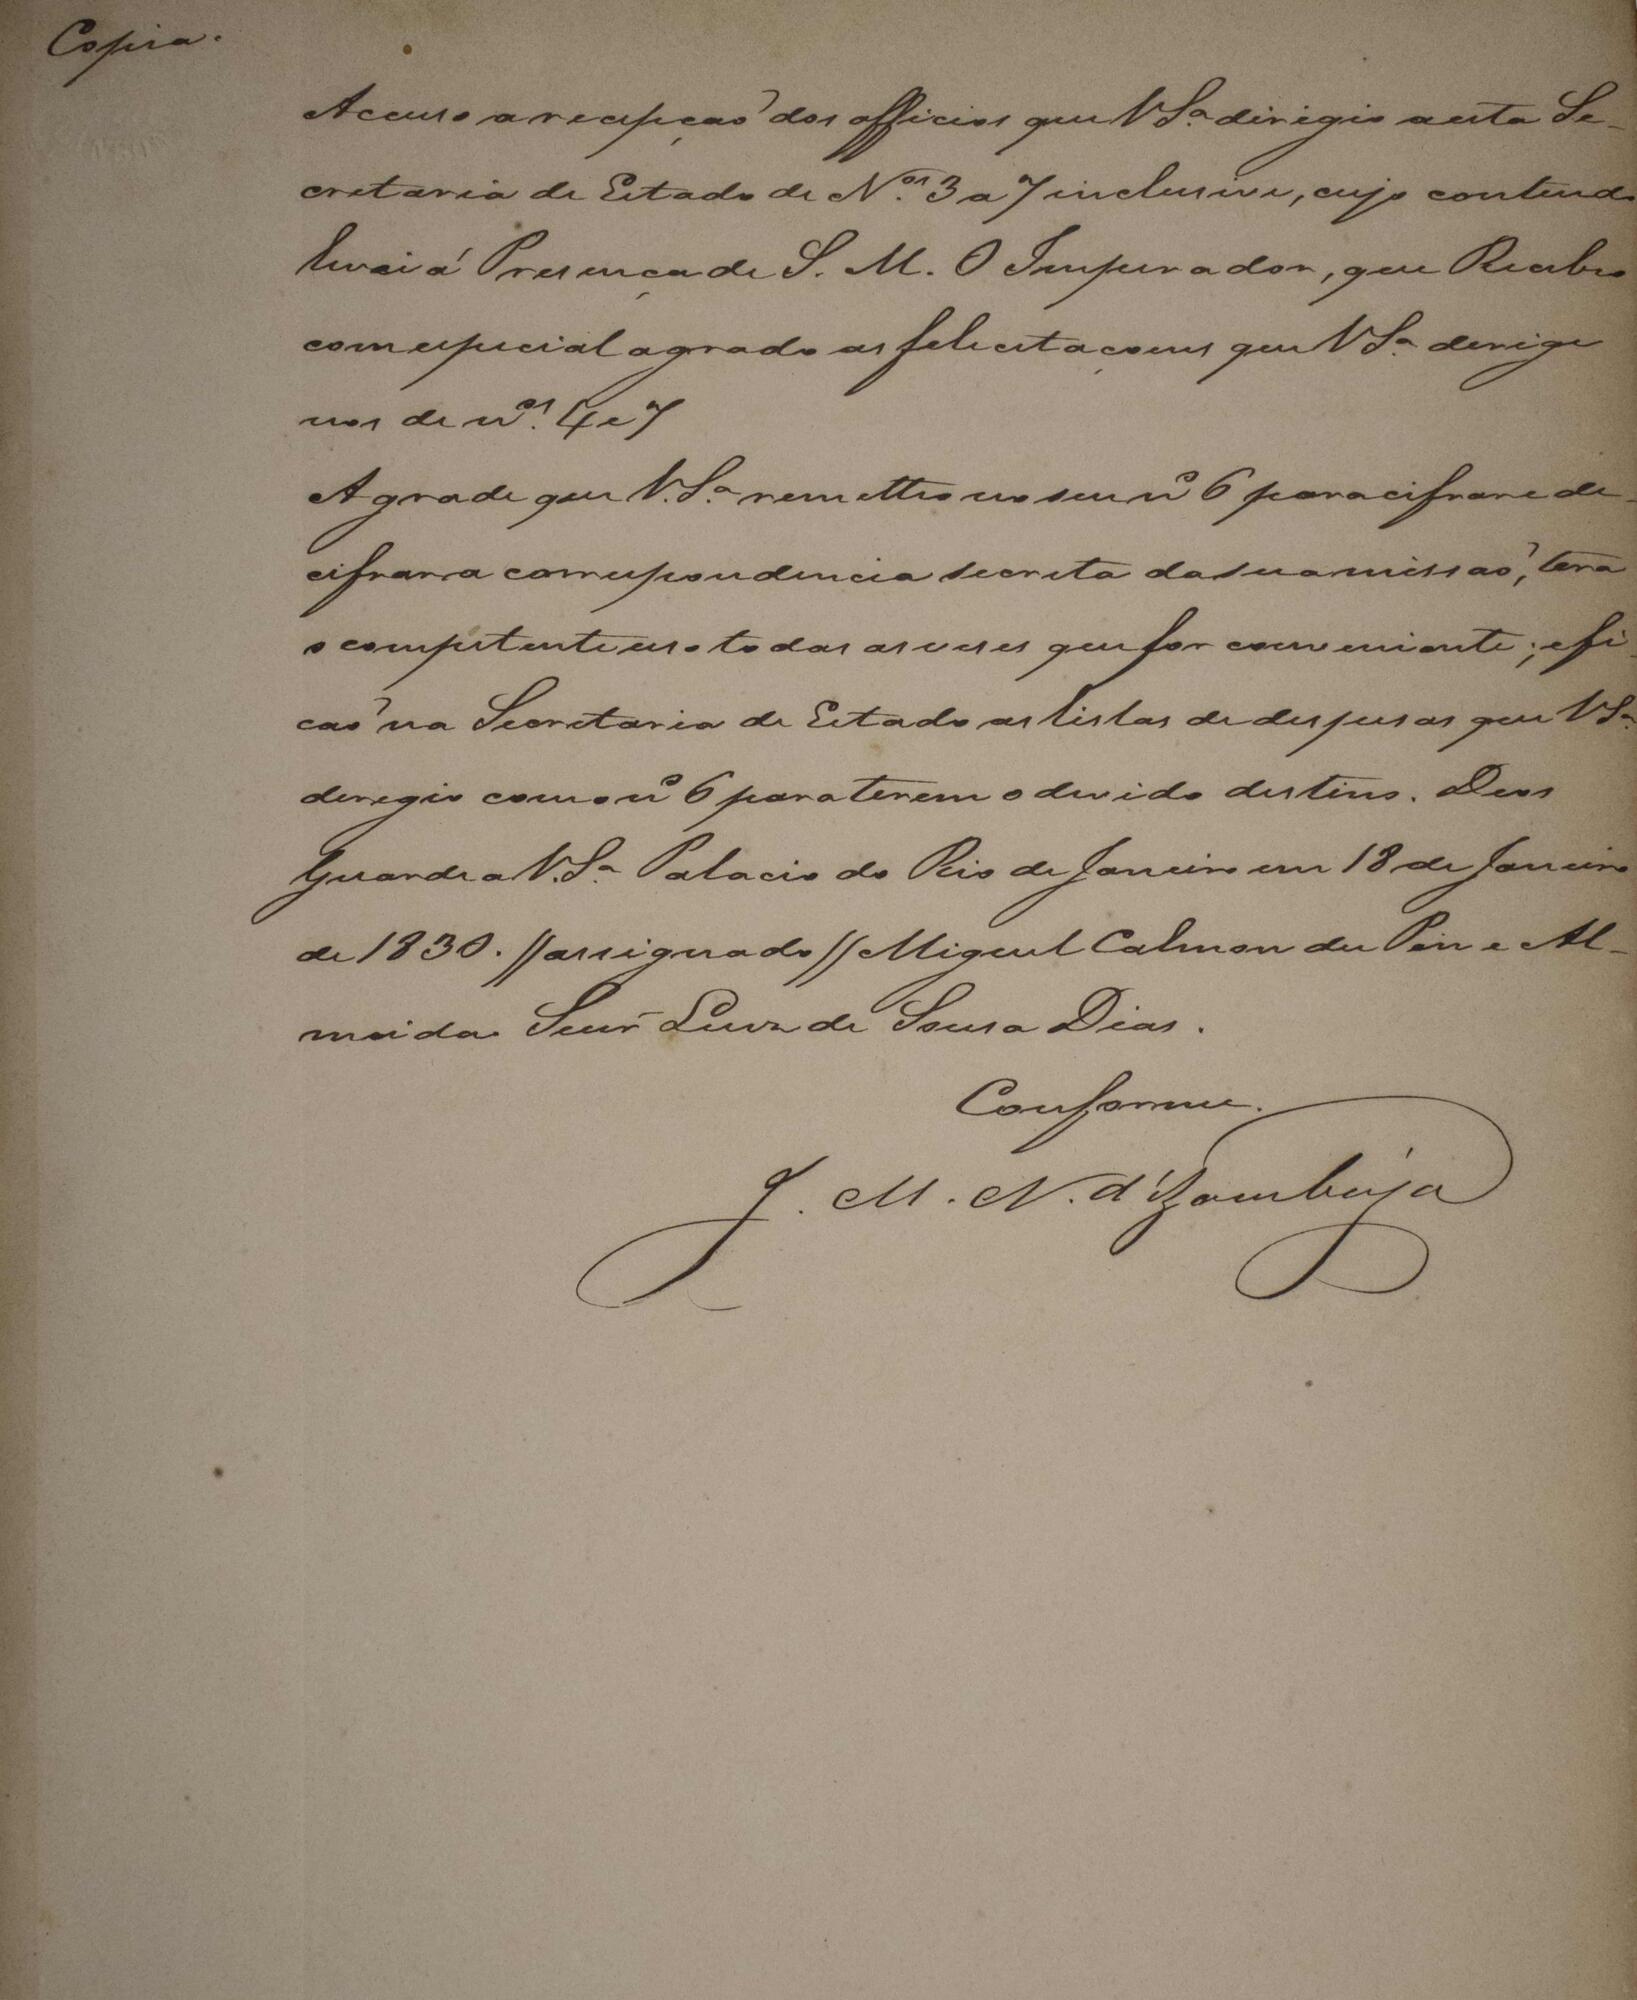 Copia.
Accuso a recepçaõ dos officios que V Sª dirigio a esta Se-
cretaria de Estado de N.os 3 a 7 inclusive, cujo contendo
levei á Presença de S. M. O Imperador, que Recebeo
com especial agrado as felicitaçoens que V Sª derige
nos de nos. 4 e 7
A grade que V. Sª remetteo no seu nº 6 para cifrar e de-
cifrar a correspondencia secreta da sua missaõ, terá
o competente uso todas as veses que for conveniente; e fi-
caõ na Secretaria de Estado as listas de despesas que V Sª
deregio com o nº 6 para terem o devido destino. Deos
Guarde a V. Sª Palacio do Rio de Janeiro em 18 de Janeiro
de 1830. // assignado // Miguel Calmon du Pin e Al-
meida Senr Luiz de Sousa Dias.
Conforme.
J. M. N. d'Azambuja